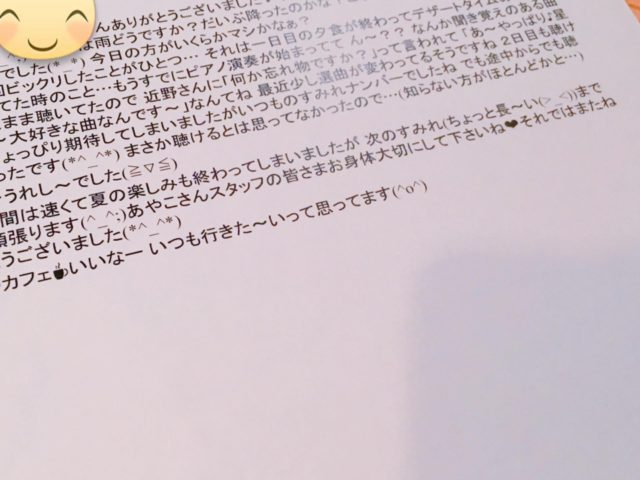 んありがとうございました
は雨どうですか？だいぶ降ったのかな？
でした(*^_^*) 今日の方がいくらかマシかなぁ？
ビックリしたことがひとつ… それは一日目の夕食が終わってデザートタイム
てた時のこと…もうすでにピアノ演奏が始まってて ん～？？ なんか聞き覚えのある曲
まま聴いてたので 近野さんに「何か忘れ物ですか？」って言われて「あ～やっぱり」星
～大好きな曲なんです～」なんてね 最近少し選曲が変わってるそうですね 2日目も聴け
ょっぴり期待してしまいましたがいつものすみれナンバーでしたね でも途中からでも聴
ったです(*^_^*) まさか聴けるとは思ってなかったので…(知らない方がほとんどかと…)
うれし～でした(≧∇≦)
間は速くて夏の楽しみも終わってしまいましたが 次のすみれ(ちょっと長～い(>_<))まで
頑張ります(^_^;)あやこさんスタッフの皆さまお身体大切にして下さいね❤それではまたね
うございました(*^_^*)
カフェ☕いいなー いつも行きた～いって思ってます(^o^)